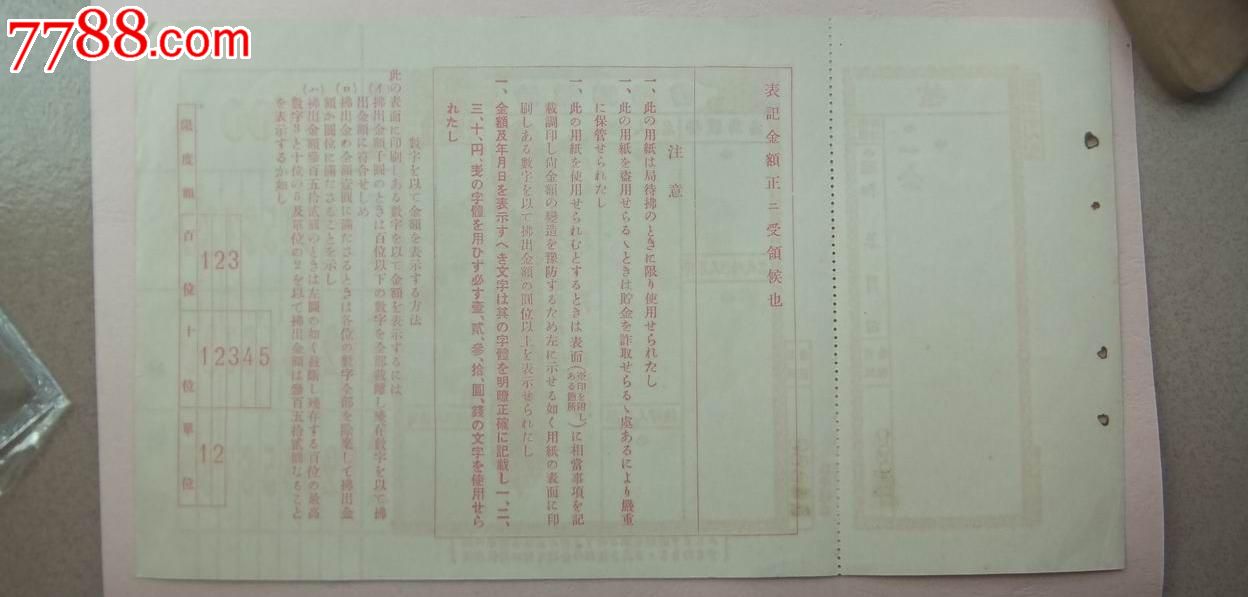 7788.com
表記金額正ニ受領候也
注意
一、此の用紙は局待拂のときに限り使用せられたし
一、此の用紙を盜用せらるヽときは貯金を詐取せらるヽ處あるにより嚴重
に保管せられたし
一、此の用紙を使用せられむとするときは表面(※印を附しある箇所)に相當事項を記
載調印し尙金額の變造を豫防するため左に示せる如く用紙の表面に印
刷しある數字を以て拂出金額の圓位以上を表示せられたし
一、金額及年月日を表示すへき文字は其の字體を明瞭正確に記載し一、二、
三、十、円、戋の字體を用ひす必す壹、貳、參、拾、圓、錢の文字を使用せら
れたし
數字を以て金額を表示する方法
此の表面に印刷しある數字を以て金額を表示するには
(イ)拂出金額千圓のときは百位以下の數字を全部截離し殘存數字を以て拂
出金額に符合せしめ
(ロ)拂出金の全額壹圓に滿たさるときは各位の數字全部を除棄して拂出金
額か圓位に滿たさることを示し
(ハ)拂出金額參百五拾貳圓のときは左圖の如く截斷し殘存する百位の最高
數字3と十位の5及單位の2を以て拂出金額は參百五拾貳圓なること
を表示するか如し
限度額
百位
123
十位
12345
單位
12